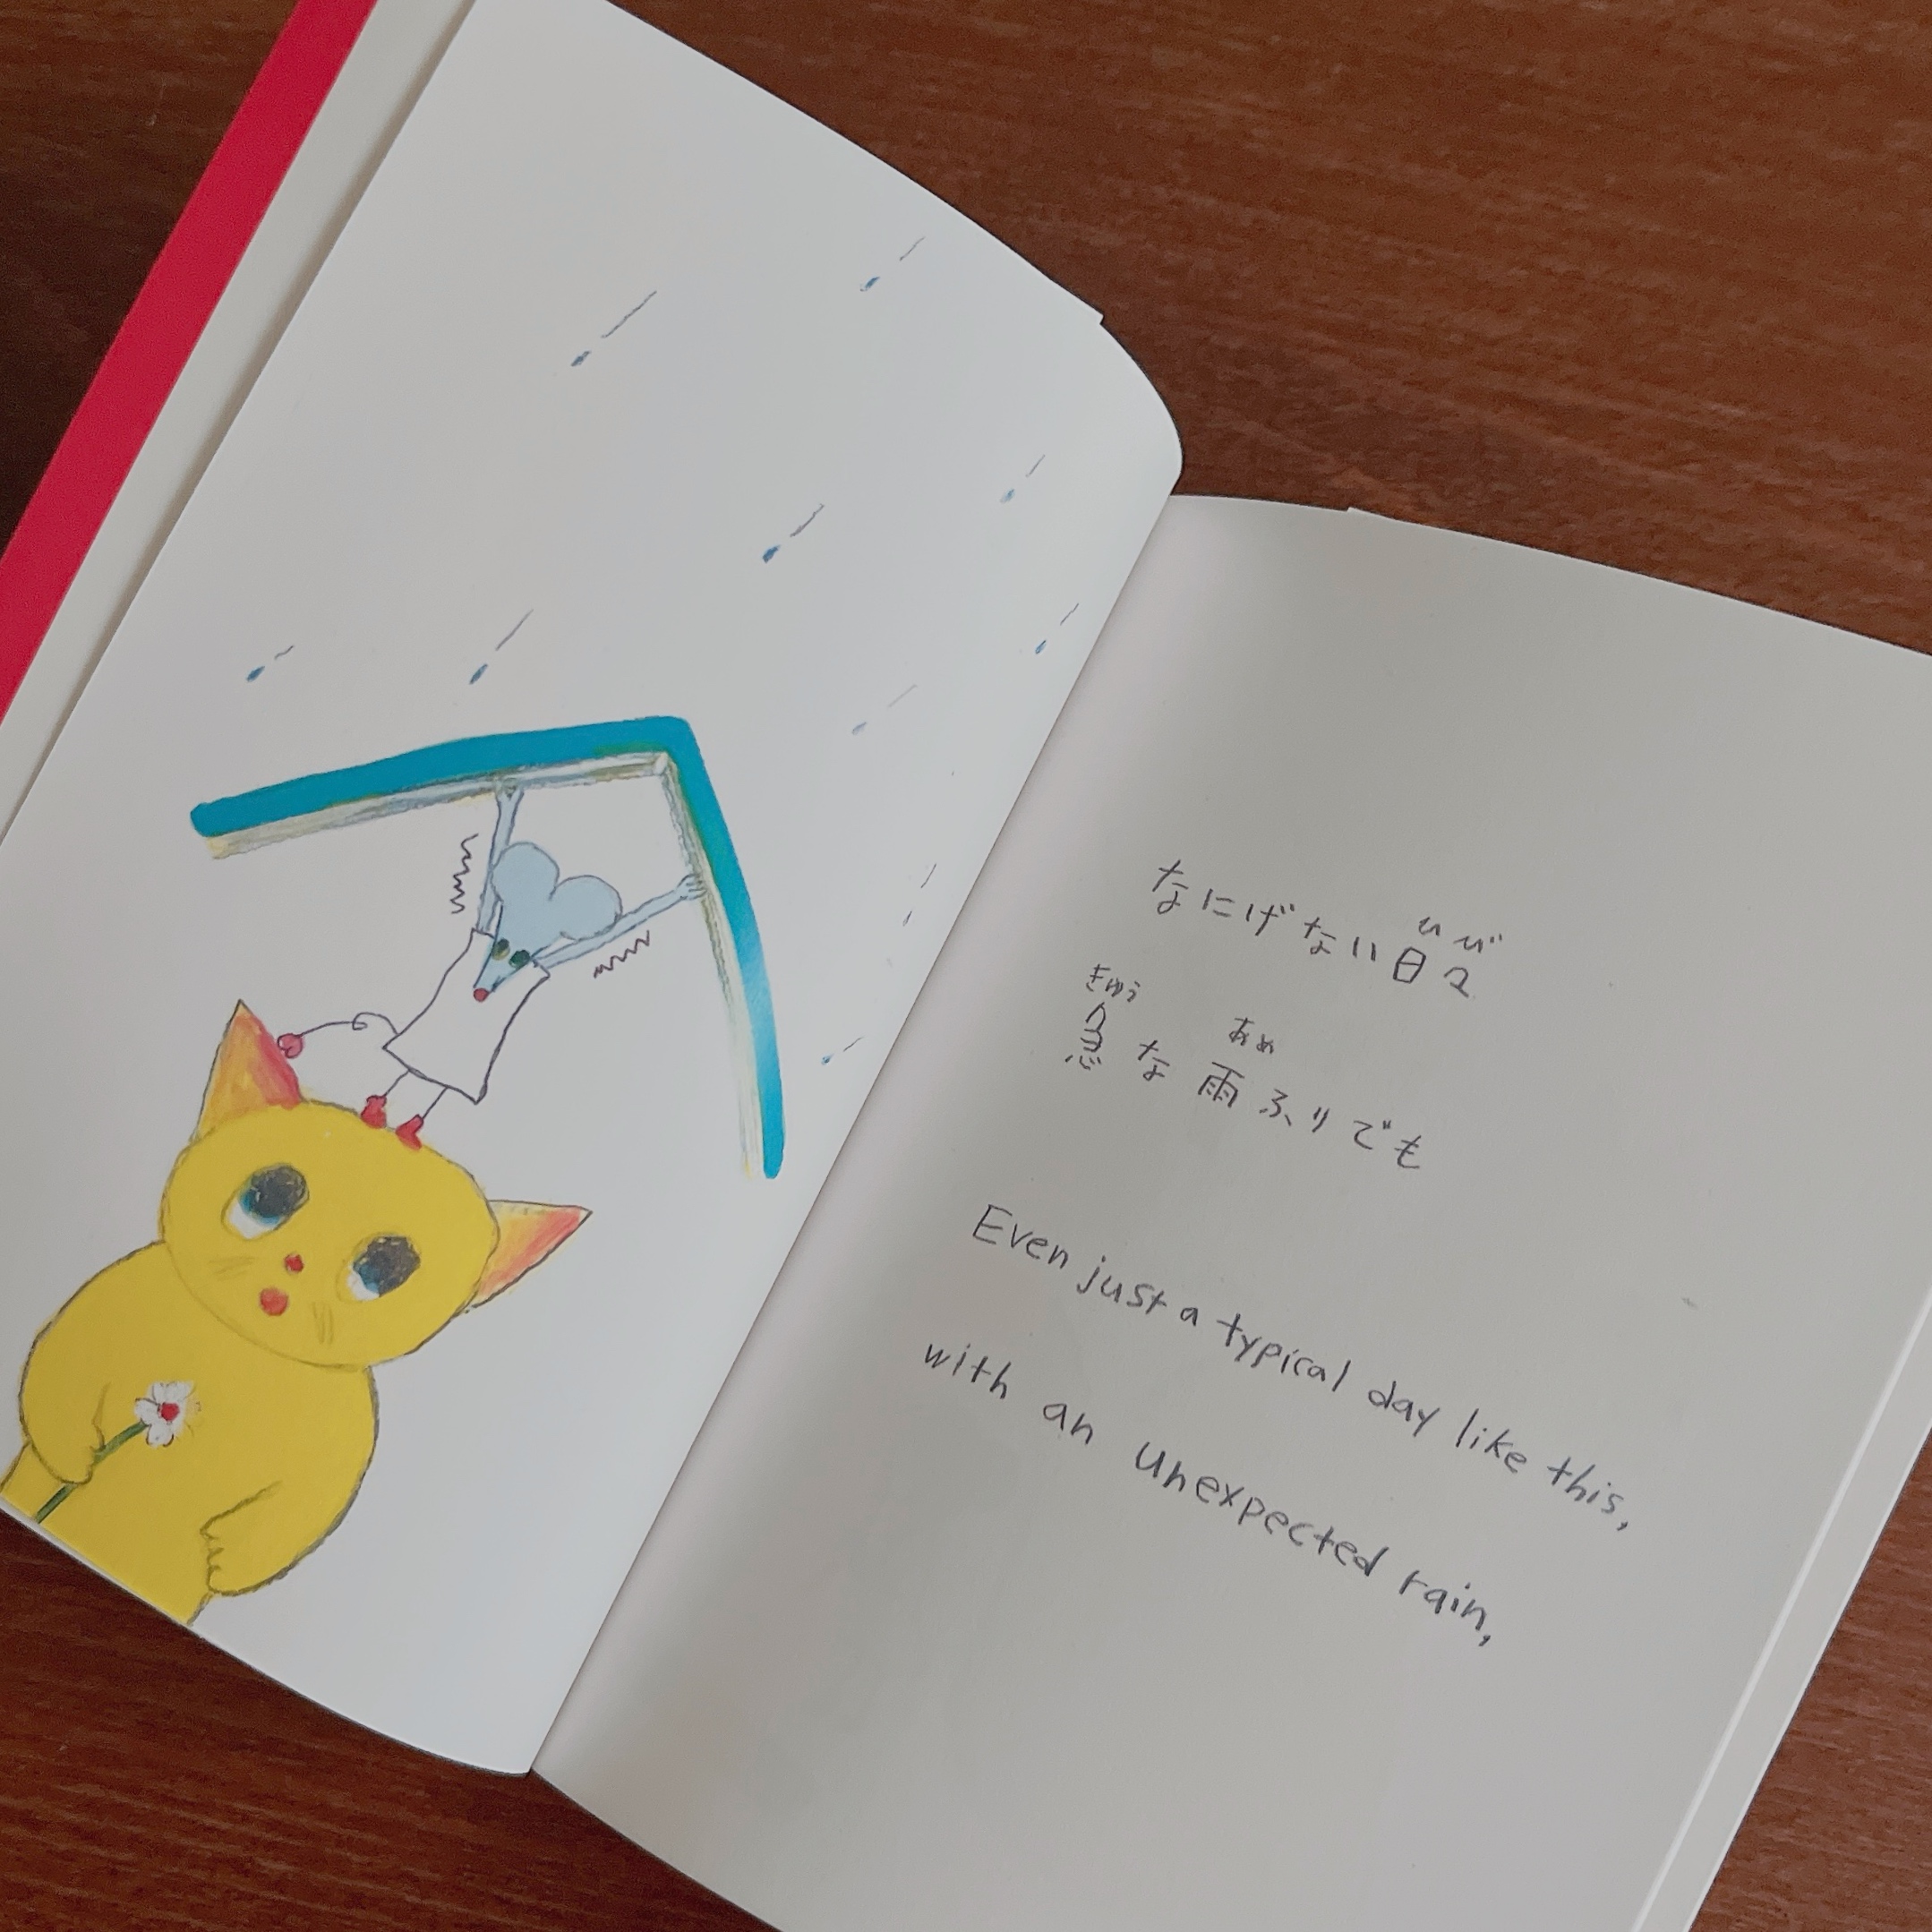 なにげない日々
ひび
急な雨ふりでも
きゅう あめ
Even just a typical day like this,
with an unexpected rain,